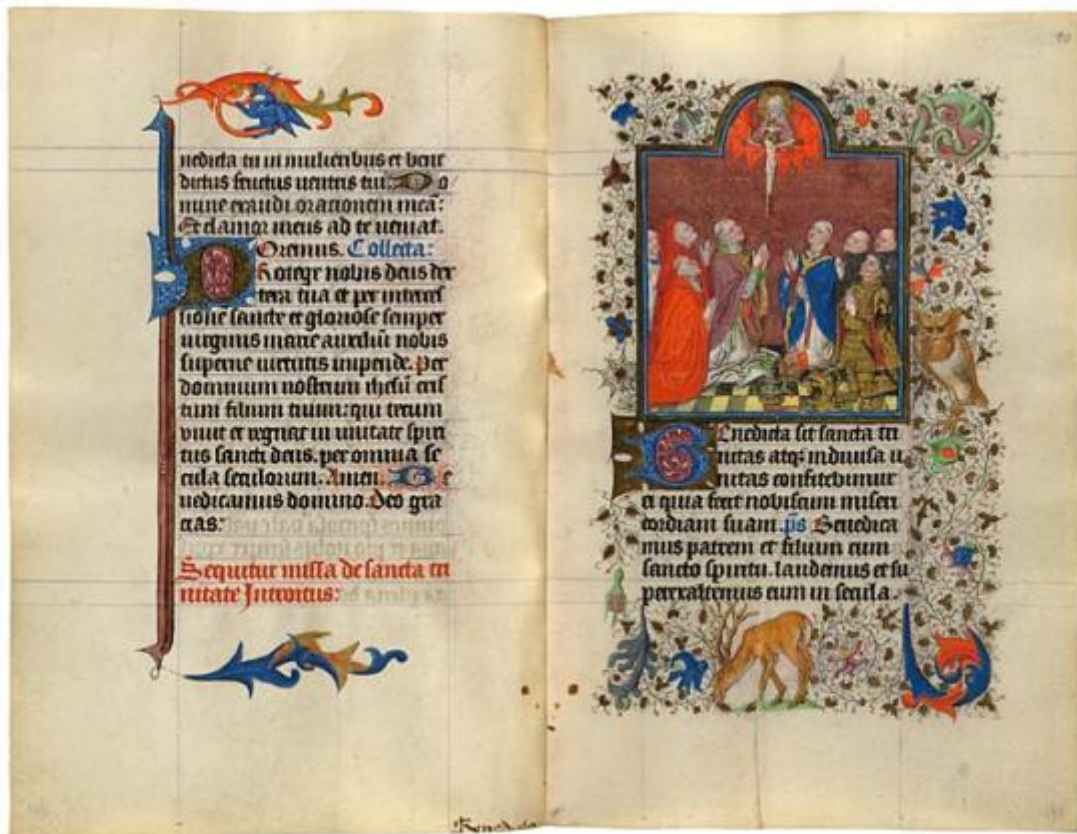 nedicta tu in mulieribus et bene
dictus fructus ventris tui. Do
mine exaudi orationem meã:
Et clamor meus ad te veniat.
Oremus. Collecta:
Protege nobis deus dex
tera tua et per interces
sionẽ sancte et gloriose semper
virginis marie auxiliũ nobis
superne virtutis impende. Per
dominum nostrum ihesũ cris
tum filium tuum: qui tecum
vivit et regnat in unitate spiri
tus sancti deus. per omnia se
cula seculorum. Amen. Be
nedicamus domino. Deo gra
cias:
Sequitur missa de sancta tri
nitate Introitus:
Benedicta sit sancta tri
nitas atq; indivisa u
nitas confitebimur
ei quia fecit nobiscum miseri
cordiam suam. p̃s Benedica
mus patrem et filium cum
sancto spiritu. laudemus et su
perexaltemus eum in secula.